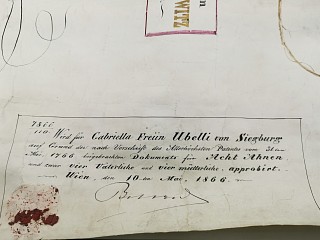 en
WITZ
7866.
110. Wird für Gabriella Freiin Ubelli von Siegburg
auf Grund der nach Vorschrift des Allerhöchsten Patentes vom
1766 eingebrachten Dokumente für Acht Ahnen
und zwar vier Väterliche und vier mütterliche, approbirt.
Wien, den 10-ten Mai, 1866.